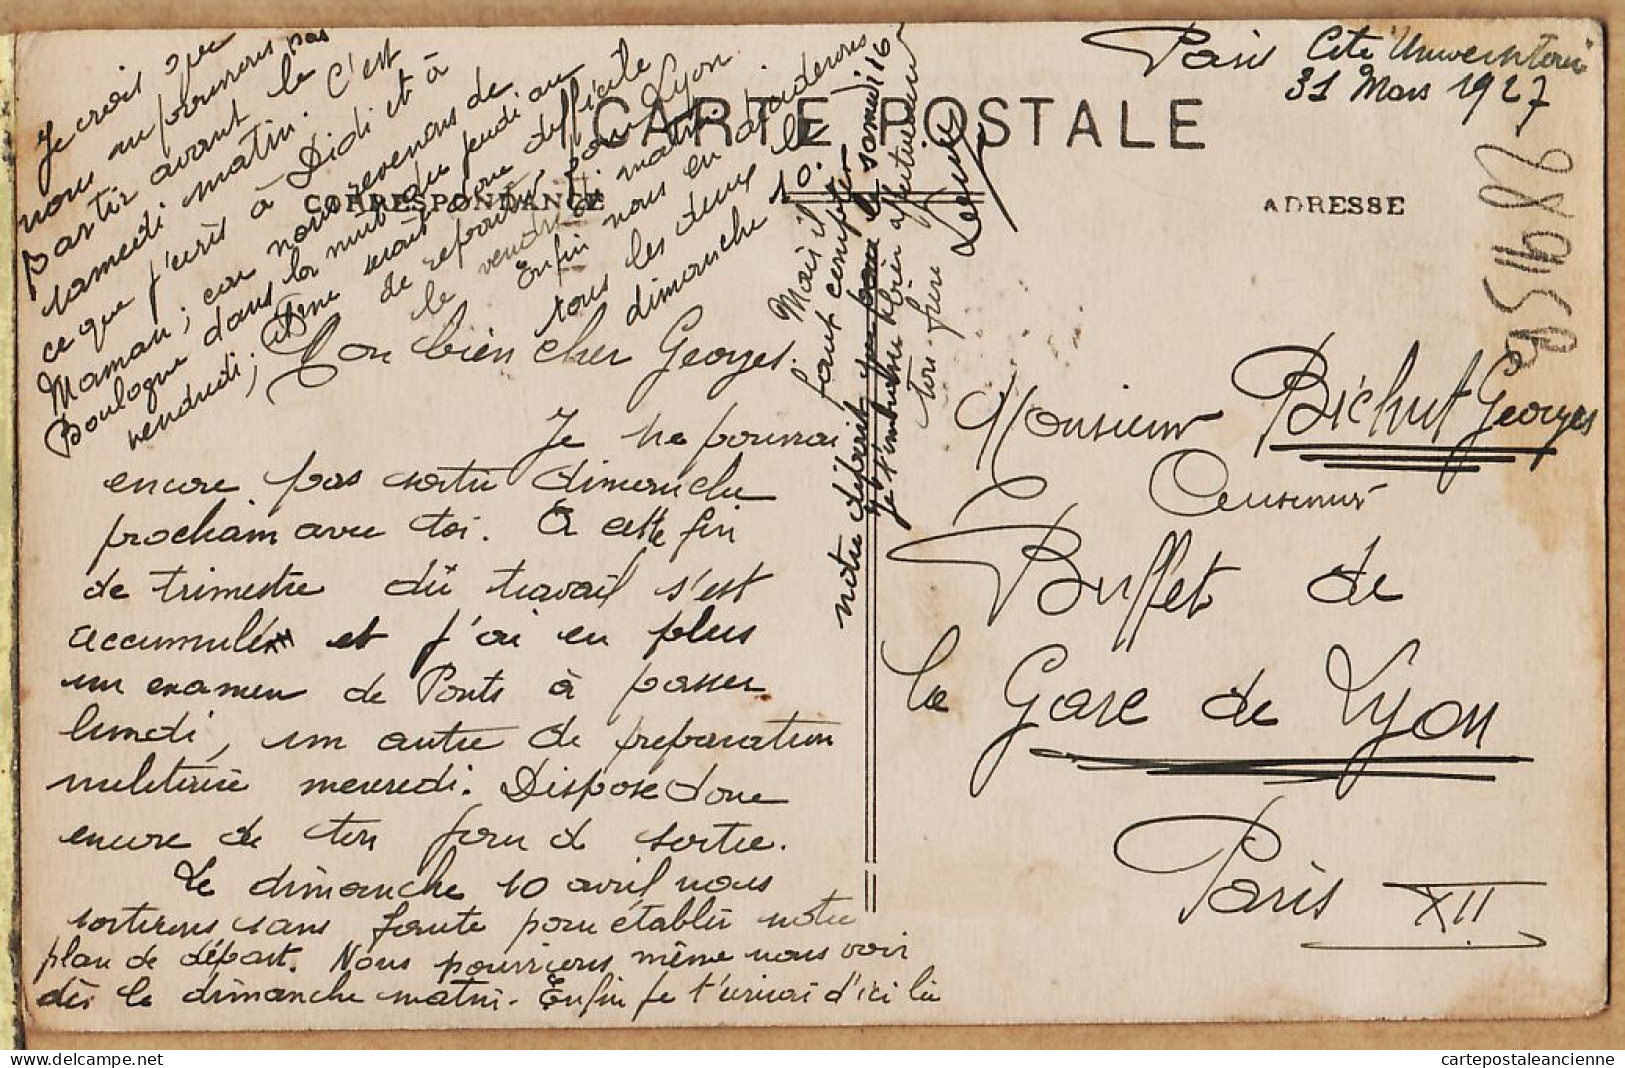 Paris Cité Universitaire
31 Mars 1927
CARTE POSTALE
CORRESPONDANCE
ADRESSE
Mon bien cher Georges.
Je ne pourrai
encore pas sortir dimanche
prochain avec toi. A cette fin
de trimestre du travail s'est
accumulé et j'ai en plus
un examen de Ponts à passer
lundi, un autre de préparation
militaire mercredi. Dispose donc
encore de ton jour de sortie.
Le dimanche 10 avril nous
sortirons sans faute pour établir notre
plan de départ. Nous pourrions même nous voir
dès le dimanche matin. Enfin je t'écrirai d'ici là
Je crois que
nous ne pourrons pas
partir avant le
samedi matin. C'est
ce que j'écris à Didi et à
Maman; car nous revenons de
Boulogne dans la nuit du jeudi au
vendredi; il me serait donc difficile
de repartir pour Lyon
le vendredi matin.
Enfin nous en causerons
tous les deux le
dimanche 10.
Mais il
faut compter
notre départ que pour le samedi 16
Je t'embrasse bien affectueusement
ton frère
Monsieur Bichut Georges
Buffet de
la Gare de Lyon
Paris XII
cartepostaleancienne